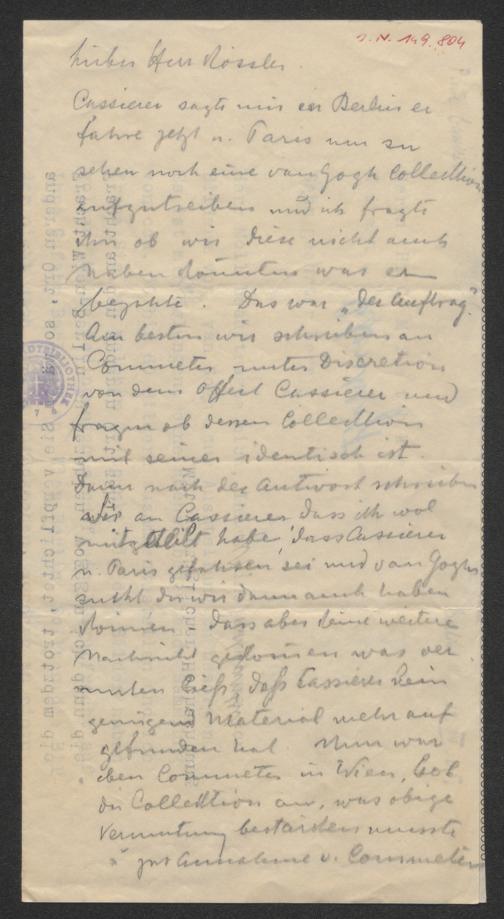 J. N. 149.804
Lieber Herr Rössler.
Cassierer sagte mir in Berlin er
fahre jetzt n. Paris um zu
sehen noch eine van Gogh Collecktion
aufzutreiben und ich fragte
ihn ob wir diese nicht auch
haben könnten was er
bejahte. Das war „der Auftrag“.
Am besten wir schreiben an
Commeter unter Discretion
von dem Offert Cassierer und
fragen ob dessen Collecktion
mit seiner identisch ist.
Dann nach der Antwort schreiben
wir an Cassierer dass ich wol
mitgetheilt habe, dass Cassierer
n. Paris gefahren sei und van Goghs
sucht die wir dann auch haben
können. Dass aber keine weitere
Nachricht gekommen was ver
muten ließ, daß Cassierer kein
genügend Material mehr auf
gefunden hat. Nun war
eben Commeter in Wien, bot
die Collecktion an, was obige
Vermutung bestärken musste
zur Annahme v. Commeter